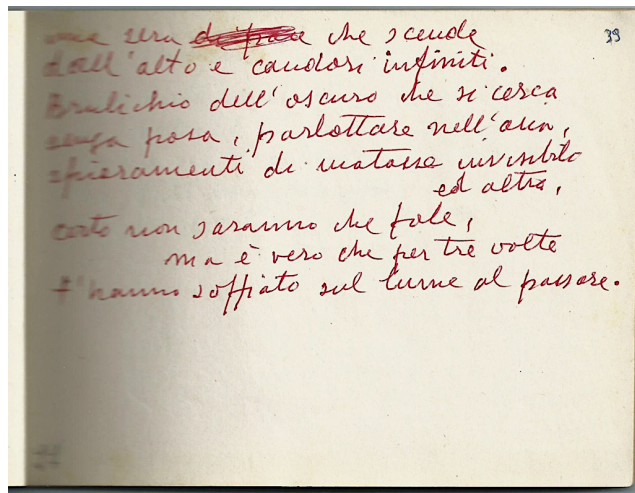 39
una sera che scende
dall'alto e candori infiniti.
Brulichio dell'oscuro che si cerca
senza posa, parlottare nell'aria,
sfioramenti di matasse invisibili
ed altro,
certo non saranno che fole,
ma è vero che per tre volte
t'hanno soffiato sul lume al passare.